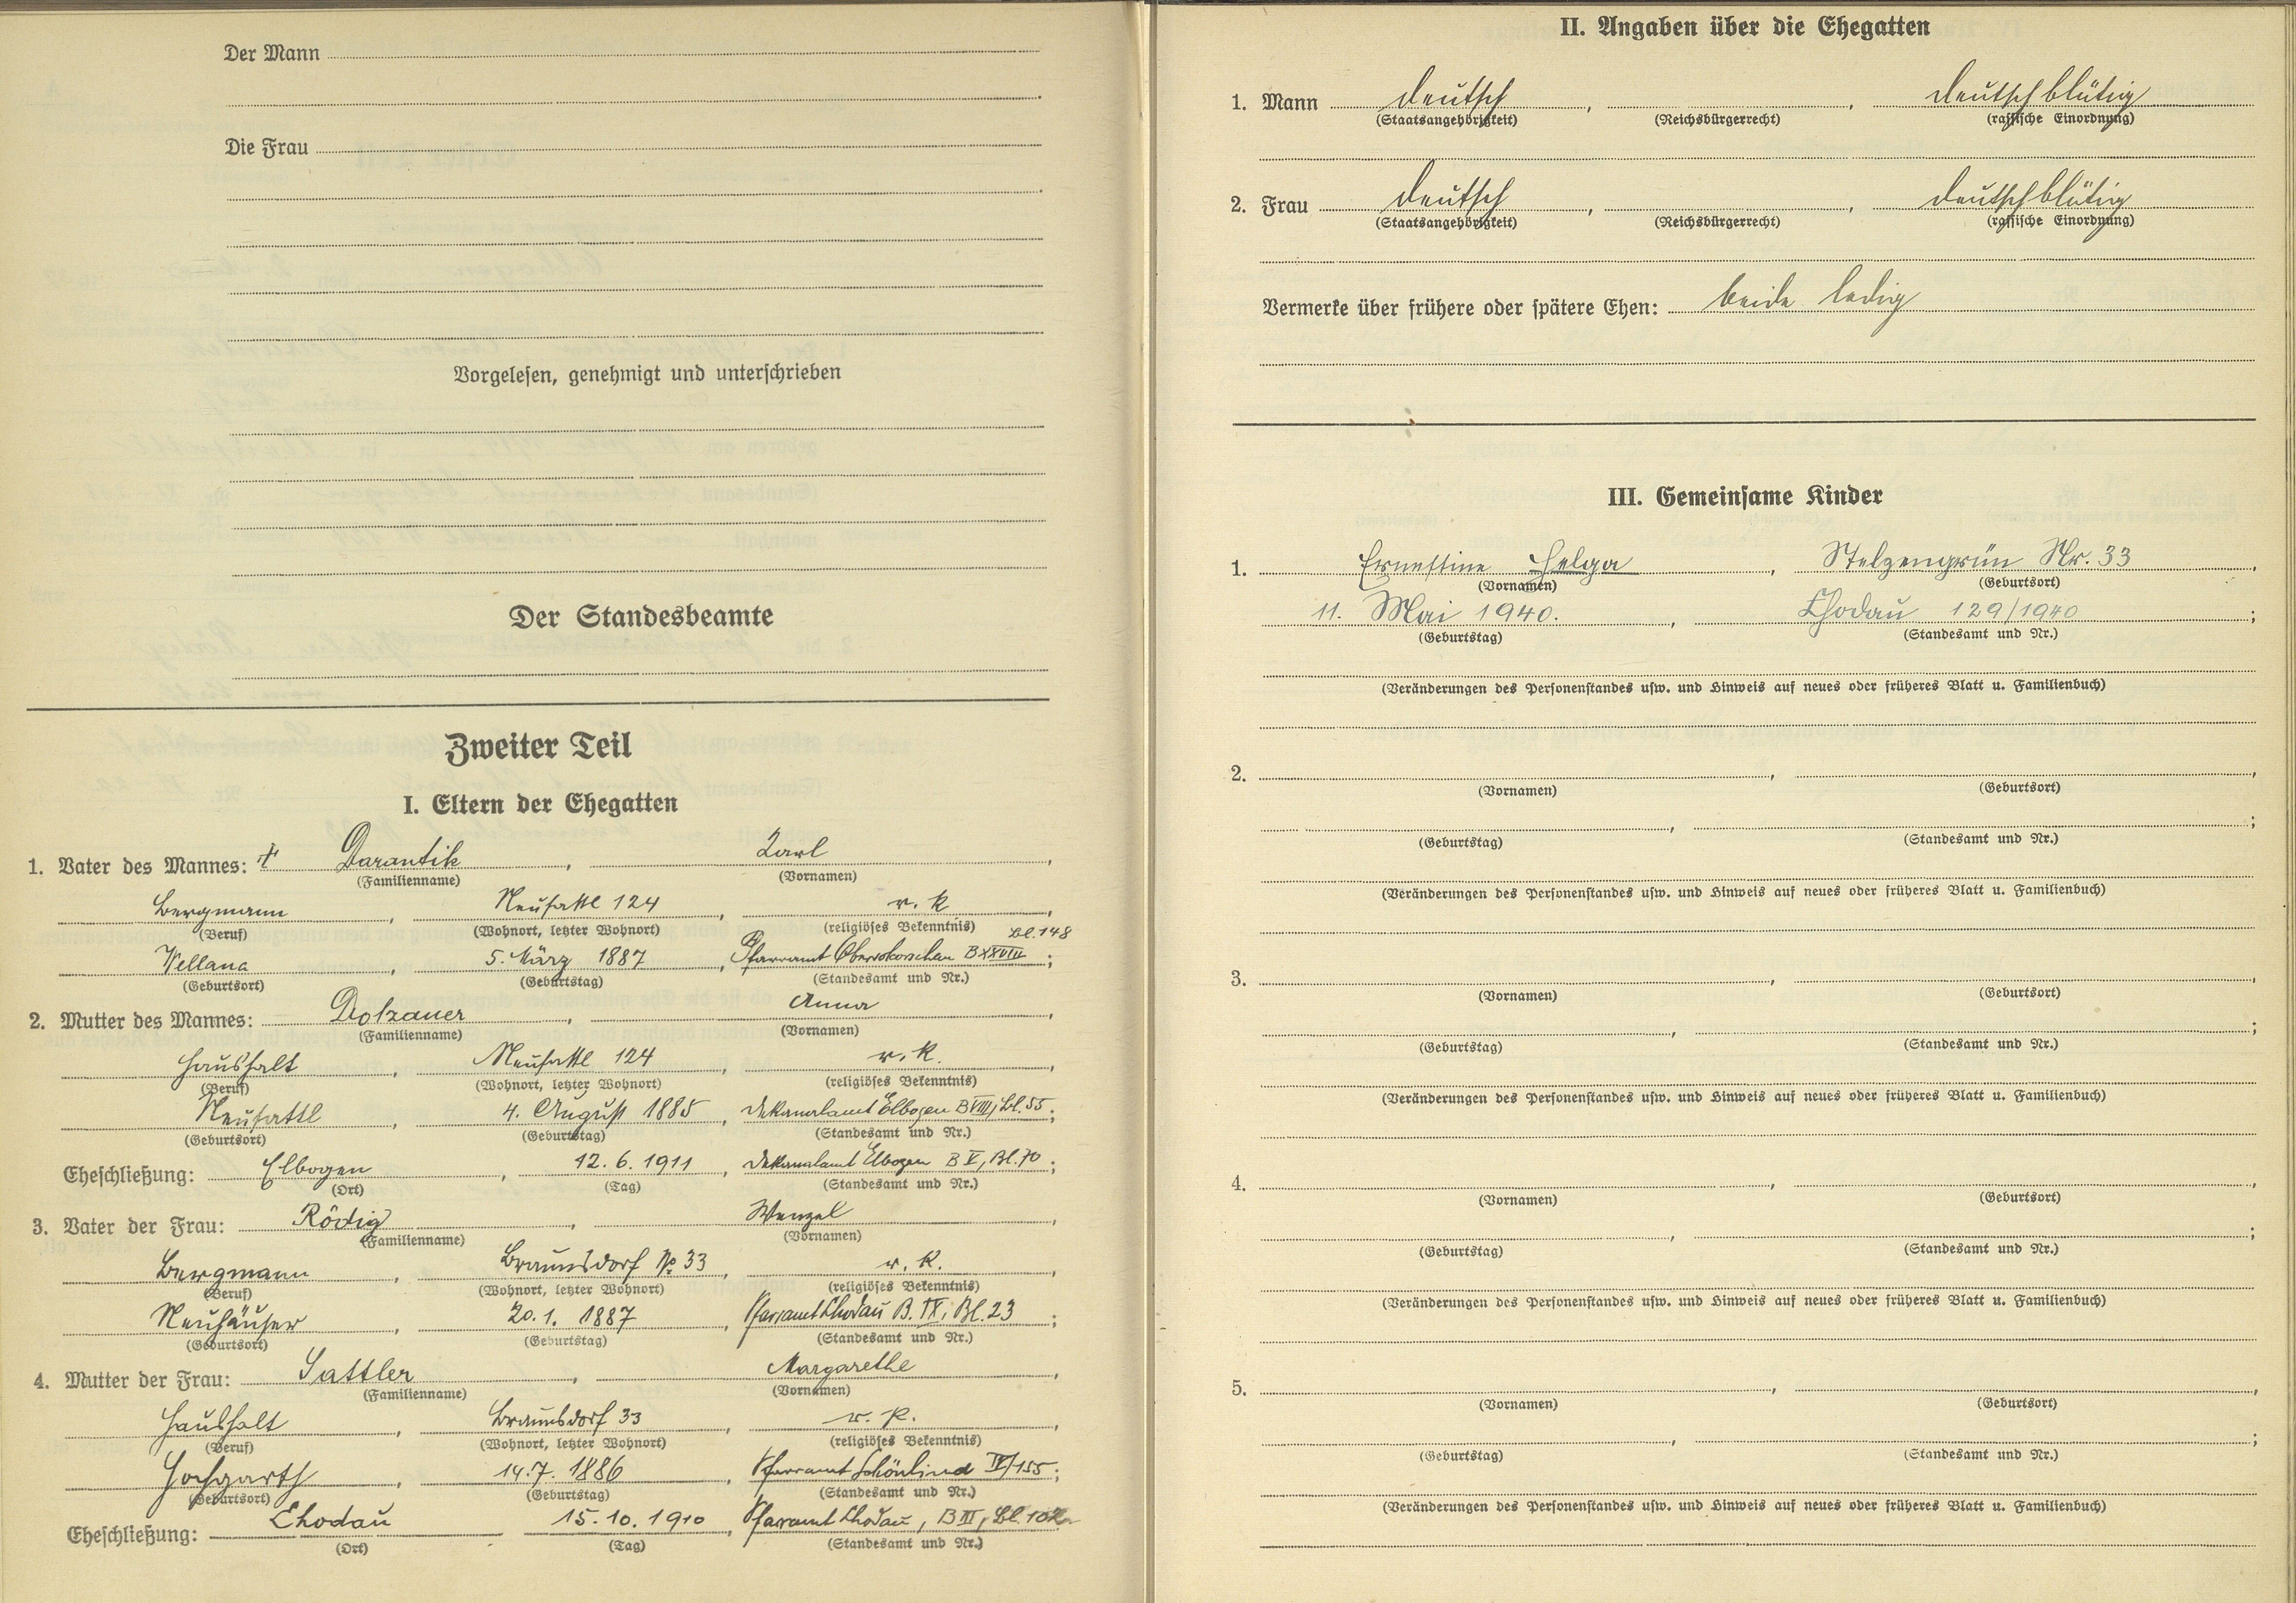 Der Mann
Die Frau
Vorgelesen, genehmigt und unterschrieben
Der Standesbeamte
Zweiter Teil
I. Eltern der Ehegatten
1. Vater des Mannes: † Darantik, Karl,
(Familienname) (Vornamen)
Bergmann, Neusattl 124, r. k.,
(Beruf) (Wohnort, letzter Wohnort) (religiöses Bekenntnis)
Bl. 148
Wellana, 5. März 1887, Pfarramt B XXVIII;
(Geburtsort) (Geburtstag) (Standesamt und Nr.)
2. Mutter des Mannes: Dolzauer, Anna,
(Familienname) (Vornamen)
Haushalt, Neusattl 124, r. k.,
(Beruf) (Wohnort, letzter Wohnort) (religiöses Bekenntnis)
Neusattl, 4. August 1885, Dekanalamt Elbogen B VIII, Bl. 55;
(Geburtsort) (Geburtstag) (Standesamt und Nr.)
Eheschließung: Elbogen, 12. 6. 1911, Dekanalamt Elbogen B V, Bl. 70;
(Ort) (Tag) (Standesamt und Nr.)
3. Vater der Frau: Rödig, Wenzel,
(Familienname) (Vornamen)
Bergmann, Braunsdorf № 33, r. k.,
(Beruf) (Wohnort, letzter Wohnort) (religiöses Bekenntnis)
Neuhäuser, 20. 1. 1887, Pfarramt Chodau B. IX, Bl. 23;
(Geburtsort) (Geburtstag) (Standesamt und Nr.)
4. Mutter der Frau: Sattler, Margarethe,
(Familienname) (Vornamen)
Haushalt, Braunsdorf 33, r. k.,
(Beruf) (Wohnort, letzter Wohnort) (religiöses Bekenntnis)
Hochgarth, 14. 7. 1886, Pfarramt Schönlind IV/155;
(Geburtsort) (Geburtstag) (Standesamt und Nr.)
Eheschließung: Chodau, 15. 10. 1910, Pfarramt Chodau, B III, Bl.
(Ort) (Tag) (Standesamt und Nr.)
II. Angaben über die Ehegatten
1. Mann deutsch, , deutschblütig
(Staatsangehörigkeit) (Reichsbürgerrecht) (rassische Einordnung)
2. Frau deutsch, , deutschblütig
(Staatsangehörigkeit) (Reichsbürgerrecht) (rassische Einordnung)
Vermerke über frühere oder spätere Ehen: beide ledig
III. Gemeinsame Kinder
1. Ernestine Helga, Stelzengrün Nr. 33,
(Vornamen) (Geburtsort)
11. Mai 1940., Chodau 129/1940;
(Geburtstag) (Standesamt und Nr.)
(Veränderungen des Personenstandes usw. und Hinweis auf neues oder früheres Blatt u. Familienbuch)
2. , ,
(Vornamen) (Geburtsort)
, ;
(Geburtstag) (Standesamt und Nr.)
(Veränderungen des Personenstandes usw. und Hinweis auf neues oder früheres Blatt u. Familienbuch)
3. , ,
(Vornamen) (Geburtsort)
, ;
(Geburtstag) (Standesamt und Nr.)
(Veränderungen des Personenstandes usw. und Hinweis auf neues oder früheres Blatt u. Familienbuch)
4. , ,
(Vornamen) (Geburtsort)
, ;
(Geburtstag) (Standesamt und Nr.)
(Veränderungen des Personenstandes usw. und Hinweis auf neues oder früheres Blatt u. Familienbuch)
5. , ,
(Vornamen) (Geburtsort)
, ;
(Geburtstag) (Standesamt und Nr.)
(Veränderungen des Personenstandes usw. und Hinweis auf neues oder früheres Blatt u. Familienbuch)